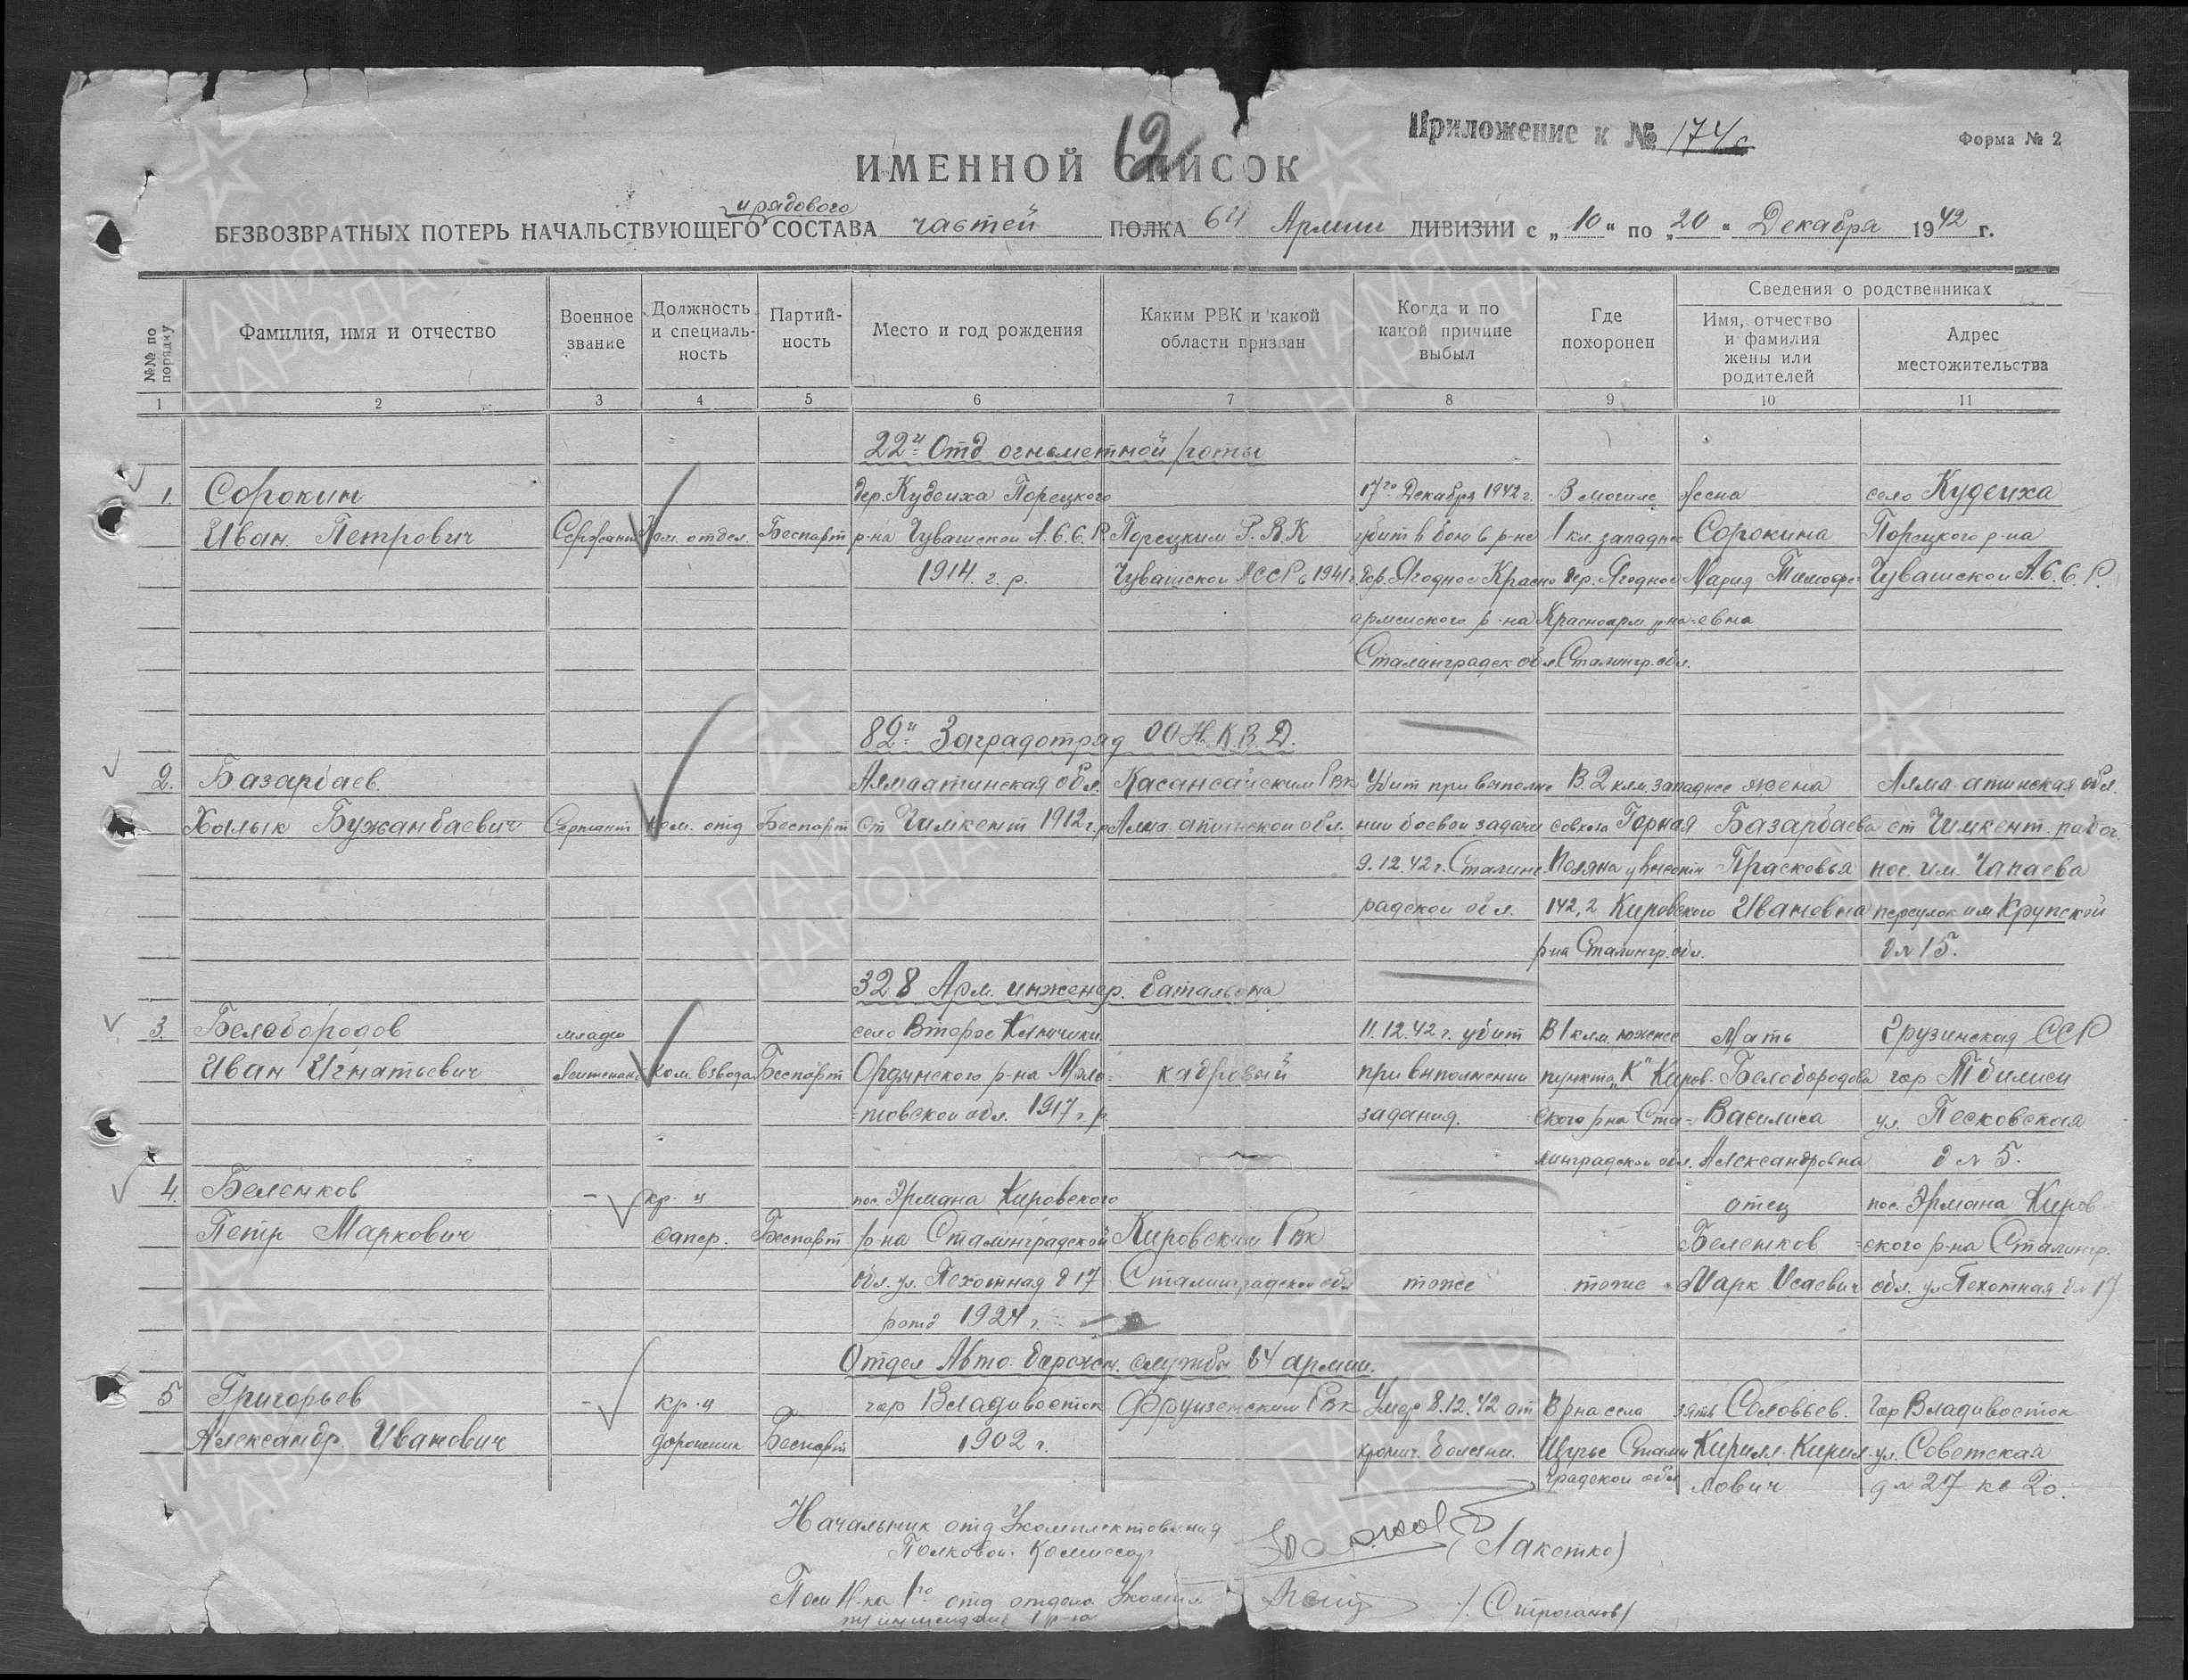 12
Приложение к № 174с
Форма № 2
ИМЕННОЙ СПИСОК
и рядового
БЕЗВОЗВРАТНЫХ ПОТЕРЬ НАЧАЛЬСТВУЮЩЕГО СОСТАВА частей ПОЛКА 64 Армии ДИВИЗИИ с „10“ по „20“ Декабря 1942 г.
№№ по порядку
Фамилия, имя и отчество
Военное звание
Должность и специальность
Партийность
Место и год рождения
Каким РВК и какой области призван
Когда и по какой причине выбыл
Где похоронен
Сведения о родственниках
Имя, отчество и фамилия жены или родителей
Адрес местожительства
1 2 3 4 5 6 7 8 9 10 11
22й Отд огнеметной роты
1. Сорокин дер. Кудеиха Порецкого 17го Декабря 1942 г. В могиле жена село Кудеиха
Иван Петрович Сержант Ком. отдел. Беспарт р-на Чувашской А.С.С.Р. Порецким Р.В.К убит в бою в р-не 1 км. западнее Сорокина Порецкого р-на
1914 г. р. Чувашской АССР в 1941 г. дер. Ягодное Красно дер. Ягодное Мария Тимофе Чувашской А.С.С.Р.
армейского р-на Красноарм р-на евна
Сталинградск обл. Сталингр. обл.
82й Заградотряд ОО Н.К.В.Д.
2. Базарбаев Алмаатинская обл. Касансайским Рвк Убит при выполне В 2 клм. западнее жена Алма атинская обл.
Халык Бужанбаевич Сержант Ком. отд Беспарт ст Чимкент 1912 г.р Алма атинской обл. нии боевой задачи совхоза Горная Базарбаева ст Чимкент. рабоч.
9.12.42 г. Сталинг Поляна у высоты Прасковья пос. им. Чапаева
радской обл. 142,2 Кировского Ивановна переулок им Крупской
р-на Сталингр. обл. д № 15.
328 Арм. инженер. батальона
3. Белобородов младш село Второе Ключики 11.12.42 г. убит В 1 клм. южнее Мать Грузинская ССР
Иван Игнатьевич Лейтенант Ком. взвода Беспарт Ординского р-на Моло- кадровый при выполнении пункта „К“ Киров- Белобородова гор Тбилиси
-товской обл. 1917 г р. задания. ского р-на Ста- Василиса ул. Песковская
линградской обл. Александровна д № 5.
4. Беленков - кр-ц пос. Эрмана Кировского отец пос. Эрмана Киров
Петр Маркович сапер. Беспарт р-на Сталинградской Кировским Рвк Беленков -ского р-на Сталингр.
обл. ул. Пехотная д 17 Сталинградской обл тоже тоже Марк Исаевич обл. ул Пехотная д № 17
рожд 1924 г.
Отдел Авто. дорожн. службы 64 армии.
5 Григорьев - кр-ц гор Владивосток Фрунзенским Рвк Умер 8.12.42 от В р-на села зять Соловьев. Гор Владивосток
Александр Иванович дорожник Беспарт 1902 г. хронич. болезни. Щучье Сталин Кирилл Кирил ул. Советская
градской обл лович д № 27 кв 20.
Начальник отд Укомплектования
Полковой Комиссар (Лакетко)
Пом Н-ка 1го отд отдела Укомпл
/Строганов/